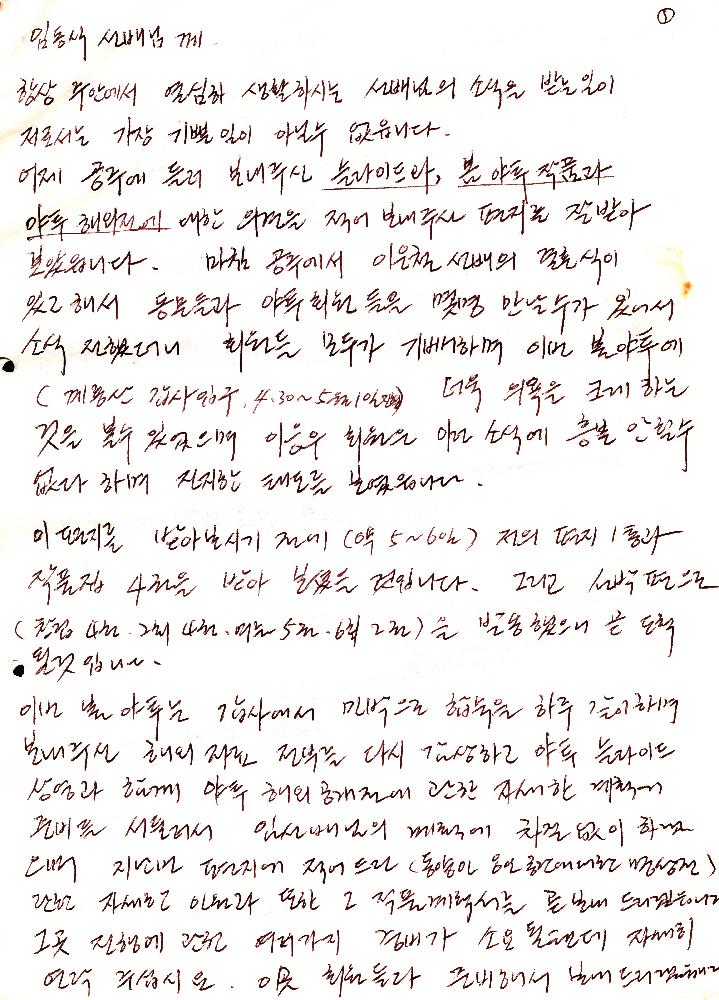 ①
임동식 선배님 께
항상 주안에서 열심히 생활하시는 선배님의 소식을 받는일이
저로서는 가장 기쁠일이 아닐수 없읍니다.
어제 공주에 들러 보내주신 슬라이드와, 봄 야투 작품과
야투 해외전에 대한 의견을 적어 보내주신 편지를 잘받아
보았읍니다. 마침 공주에서 이운철 선배의 결혼식이
있고 해서 동문들과 야투회원 들을 몇명 만날수가 있어서
소식 전했더니 회원들 모두가 기뻐하며 이번 봄야투에
(계룡산 갑사입구, 4.30~5월1일) 더욱 의욕을 크게 하는
것을 볼수 있었으며 이응우 회원은 이런 소식에 흥분 안할수
없다 하며 진지한 태도를 보였읍니다.
이 편지를 받아보시기 전에 (약 5~6일) 저의 편지 1통과
작품집 4권을 받아 보셨을 것입니다. 그리고 선박 편으로
(창립 4권. 2회 4권. 여름 5권. 6회 2권)을 발송했으니 곧 도착
될것 입니다.
이번 봄 야투는 갑사에서 민박으로 합숙을 하루 같이하며
보내주신 해외 자료 전부를 다시 감상하고 야투 슬라이드
상영과 함께 야투 해외공개전에 관한 자세한 계획과
준비를 서둘러서 임선배님의 계획에 차질 없이 하겠
으며 지난번 편지에 적어 드린 (동양인
관한 자세한 인원과 또한 그 작품계획서는 곧 보내 드리겠읍니다
그곳 진행에 관한 여러가지 경비가 소요 될텐데 자세히
연락 주십시요. 이곳 회원들과 준비해서 보내드리겠읍니다